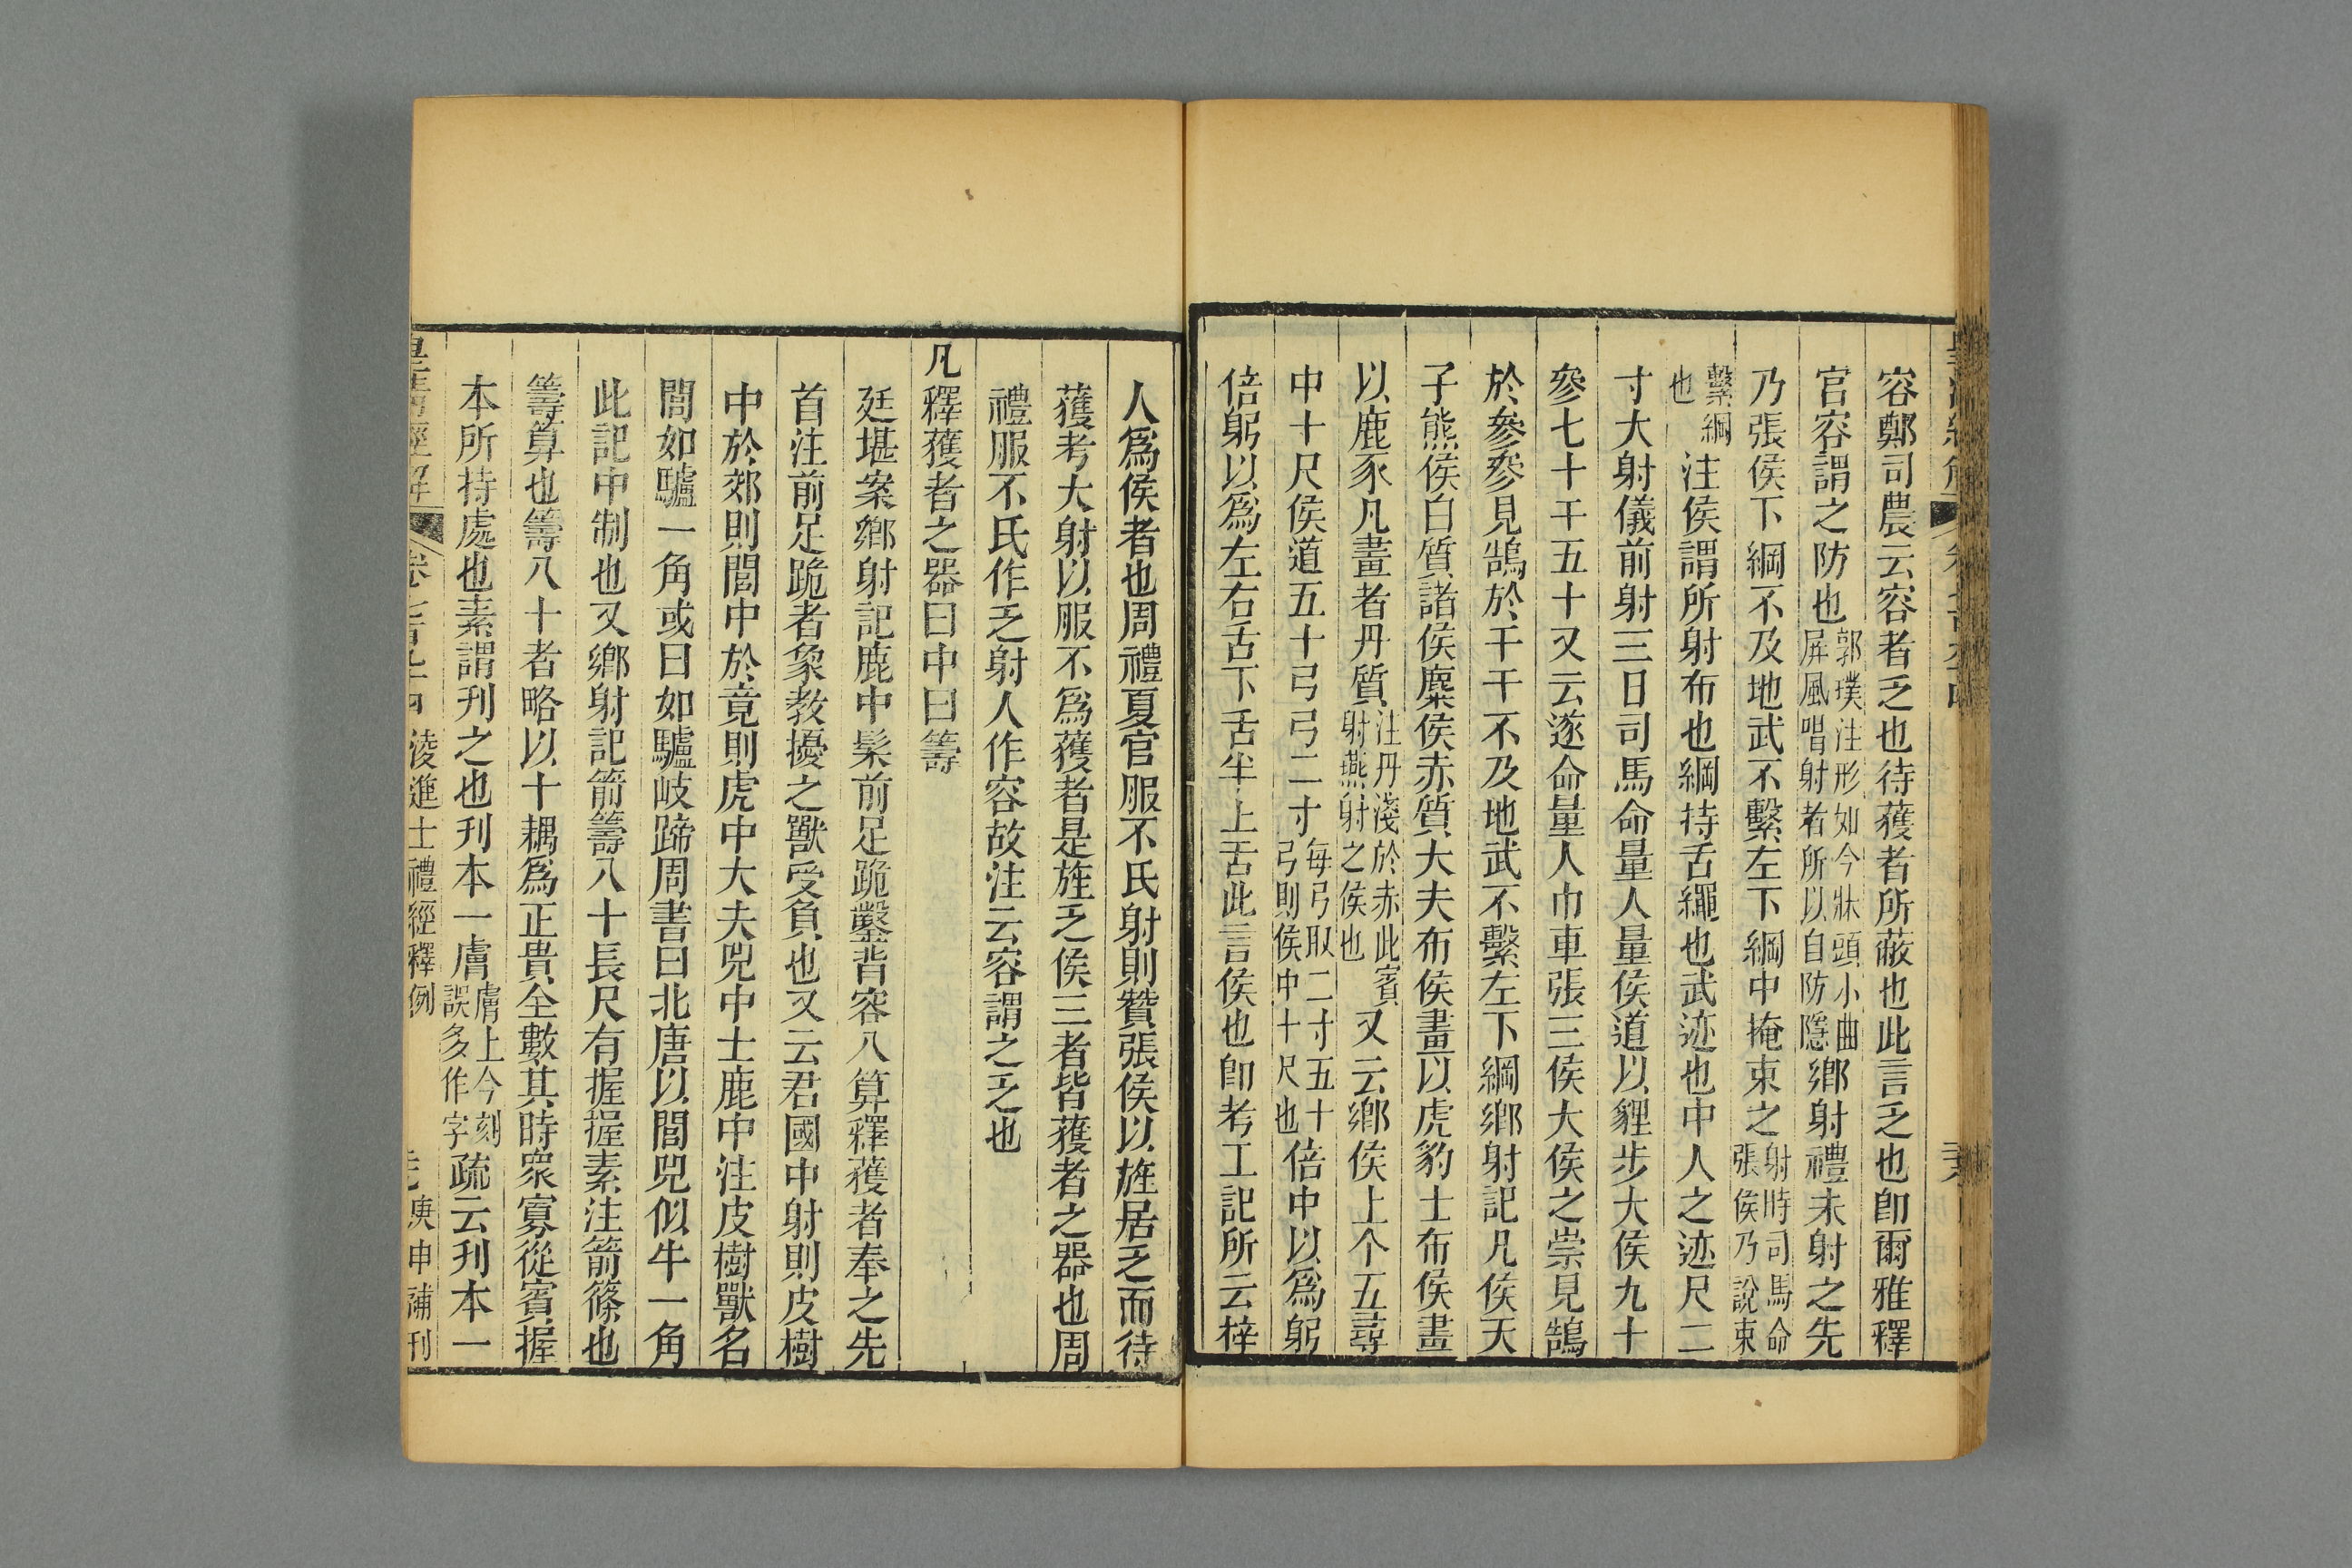 容鄭司農云容者乏也待獲者所蔽也此言乏也卽爾雅釋
官容謂之防也郭璞注形如今牀頭小曲屏風唱射者所以自防隱鄉射禮未射之先
乃張侯下綱不及地武不繫左下綱中掩束之射時司馬命張侯乃說束
繫綱也注侯謂所射布也綱持舌繩也武迹也中人之迹尺二
寸大射儀前射三日司馬命量人量侯道以貍步大侯九十
參七十干五十又云遂命量人巾車張三侯大侯之崇見鵠
於參參見鵠於干干不及地武不繫左下綱鄉射記凡侯天
子熊侯白質諸侯麋侯赤質大夫布侯畫以虎豹士布侯畫
以鹿豕凡畫者丹質注丹淺於赤此賓射燕射之侯也又云鄉侯上个五尋
中十尺侯道五十弓弓二寸每弓取二寸五十弓則侯中十尺也倍中以爲躬
倍躬以爲左右舌下舌半上舌此言侯也卽考工記所云梓
人爲侯者也周禮夏官服不氏射則贊張侯以旌居乏而待
獲考大射以服不爲獲者是旌乏侯三者皆獲者之器也周
禮服不氏作乏射人作容故注云容謂之乏也
凡釋獲者之器曰中曰籌
廷堪案鄉射記鹿中髤前足跪鑿背容八算釋獲者奉之先
首注前足跪者象教擾之獸受負也又云君國中射則皮樹
中於郊則閭中於竟則虎中大夫兕中士鹿中注皮樹獸名
閭如驢一角或曰如驢岐蹄周書曰北唐以閭兕似牛一角
此記中制也又鄉射記箭籌八十長尺有握握素注箭篠也
籌算也籌八十者略以十耦爲正貴全數其時衆寡從賓握
本所持處也素謂刊之也刊本一膚膚上今刻誤多作字疏云刊本一
皇淸經解 卷七百九十四 淩進士禮經釋例 庚申補刊